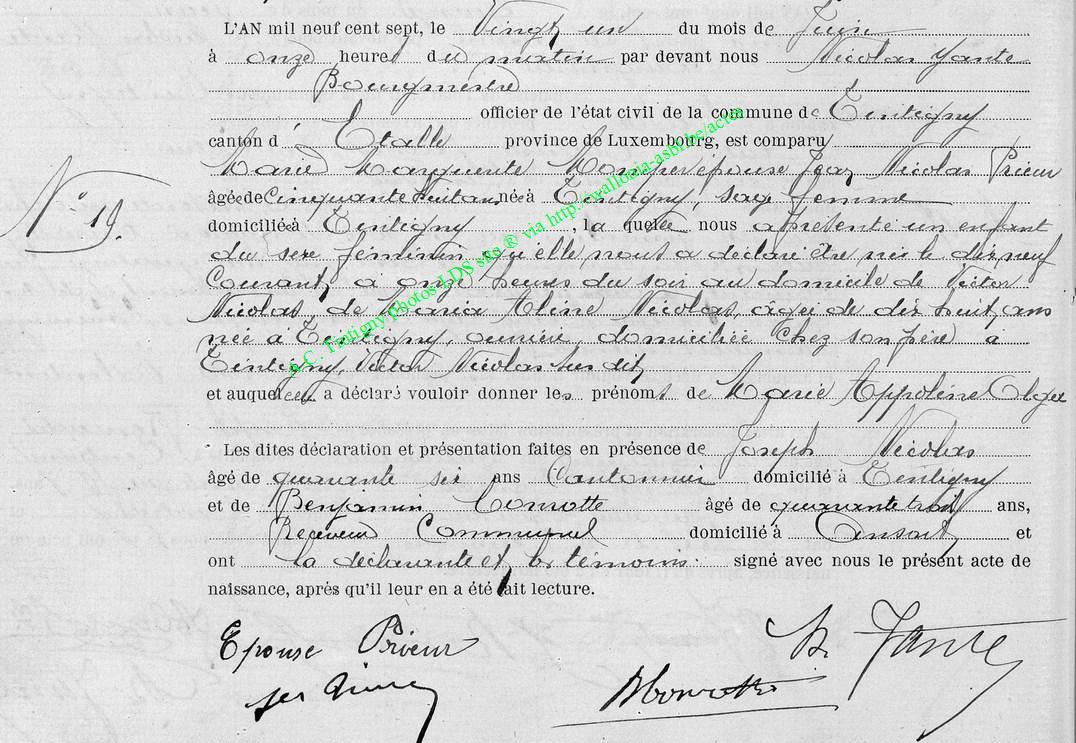 L'AN mil neuf cent sept, le Vingt un du mois de Juin
à onze heures du matin par devant nous Nicolas Yante
Bourgmestre
officier de l'état civil de la commune de Tintigny
canton d' Etalle province de Luxembourg, est comparu
Marie Marguerite épouse Jean Nicolas Prieur
âgée de Cinquante huit ans, née à Tintigny, sage femme
domiciliée à Tintigny, laquelle nous a présenté un enfant
du sexe féminin, qu'elle nous a déclaré être né le dix neuf
Courant, à onze heures du soir au domicile de Victor
Nicolas, de Maria Aline Nicolas, âgée de dix huit ans
née à Tintigny, ouvrière, domiciliée chez son père à
Tintigny, Victor Nicolas sus dit,
et auquel elle a déclaré vouloir donner les prénoms de Marie Appoline Olga
N° 19.
Les dites déclaration et présentation faites en présence de Joseph Nicolas
âgé de quarante six ans Cantonnier domicilié à Tintigny
et de Benjamin Cornette âgé de quarante trois ans,
Receveur Communal domicilié à Ansart et
ont la déclarante et les témoins signé avec nous le présent acte de
naissance, après qu'il leur en a été fait lecture.
Epouse Prieur
B Cornette
N. Yante
A-C. Tintigny photos LDS site ® via http://wallonia-asbl.be/actes